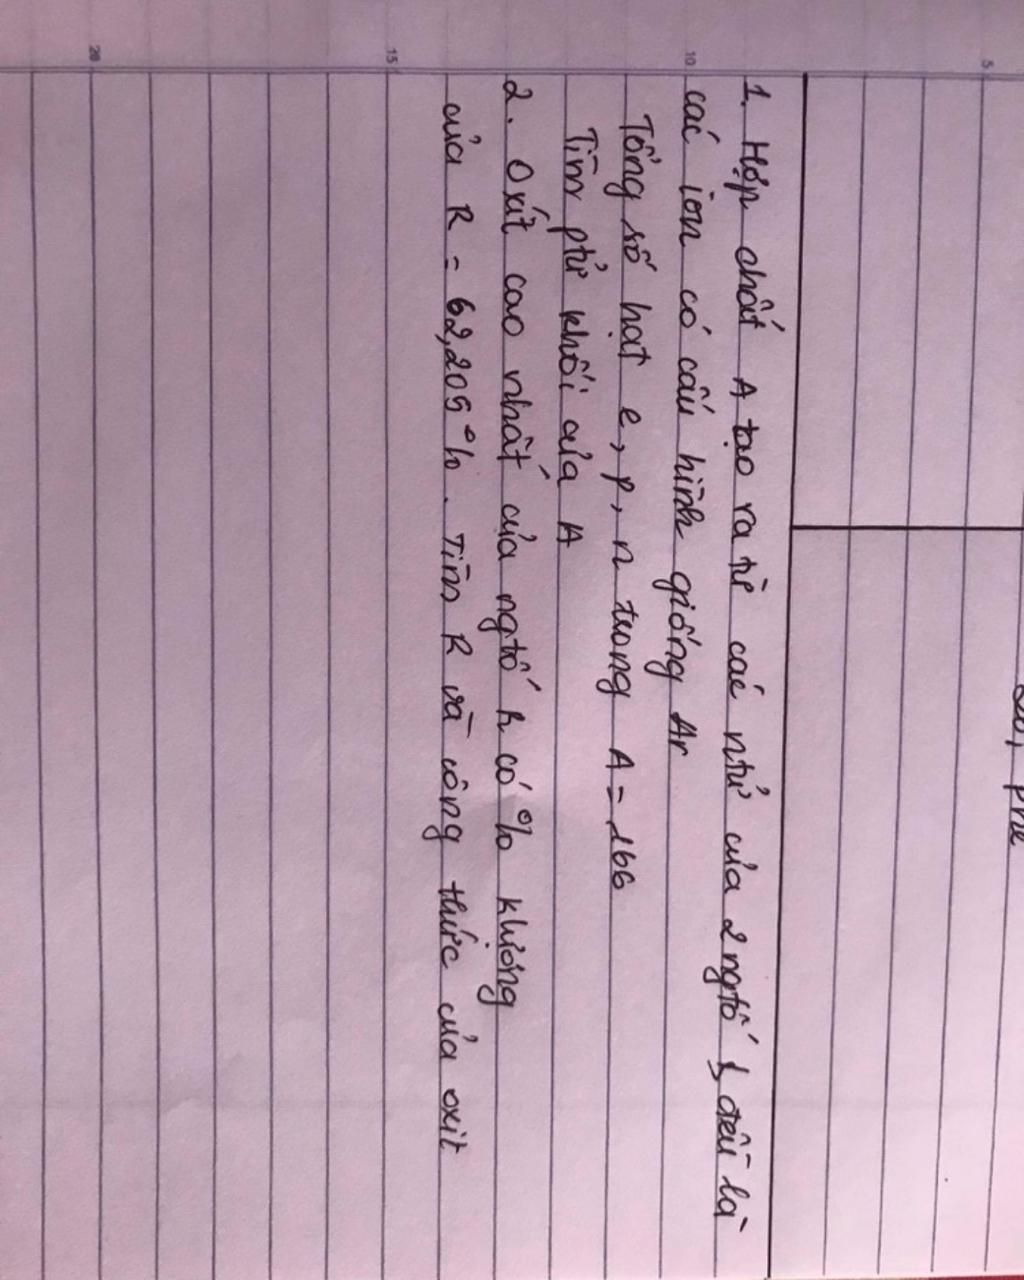 1. Hợp chất A tạo ra từ các ntử của 2 ngtố, đều là
các ion có cấu hình giống Ar
Tổng số hạt e, p, n trong A = 166
Tìm ptử khối của A
2. Oxit cao nhất của ngtố R có % khlượng
của R = 62,205%. Tìm R và công thức của oxit
5
10
15
20